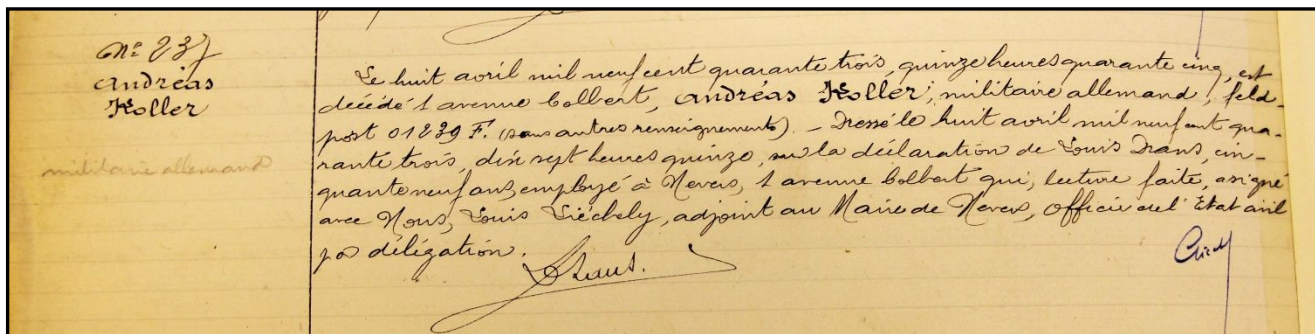 N° 237
Andréas
Koller
militaire allemand
Le huit avril mil neuf cent quarante trois, quinze heures quarante cinq, est
décédé 1 avenue Colbert, Andréas Koller, militaire allemand, feld-
post 01239 F. (sans autres renseignements). _ Dressé le huit avril mil neuf cent qua-
rante trois, dix sept heures quinze, sur la déclaration de Louis Drans, cin-
quante neuf ans, employé à Nevers, 1 avenue Colbert qui, lecture faite, a signé
avec Nous, Louis Liéchely, adjoint au Maire de Nevers, officier de l'Etat civil
par délégation.